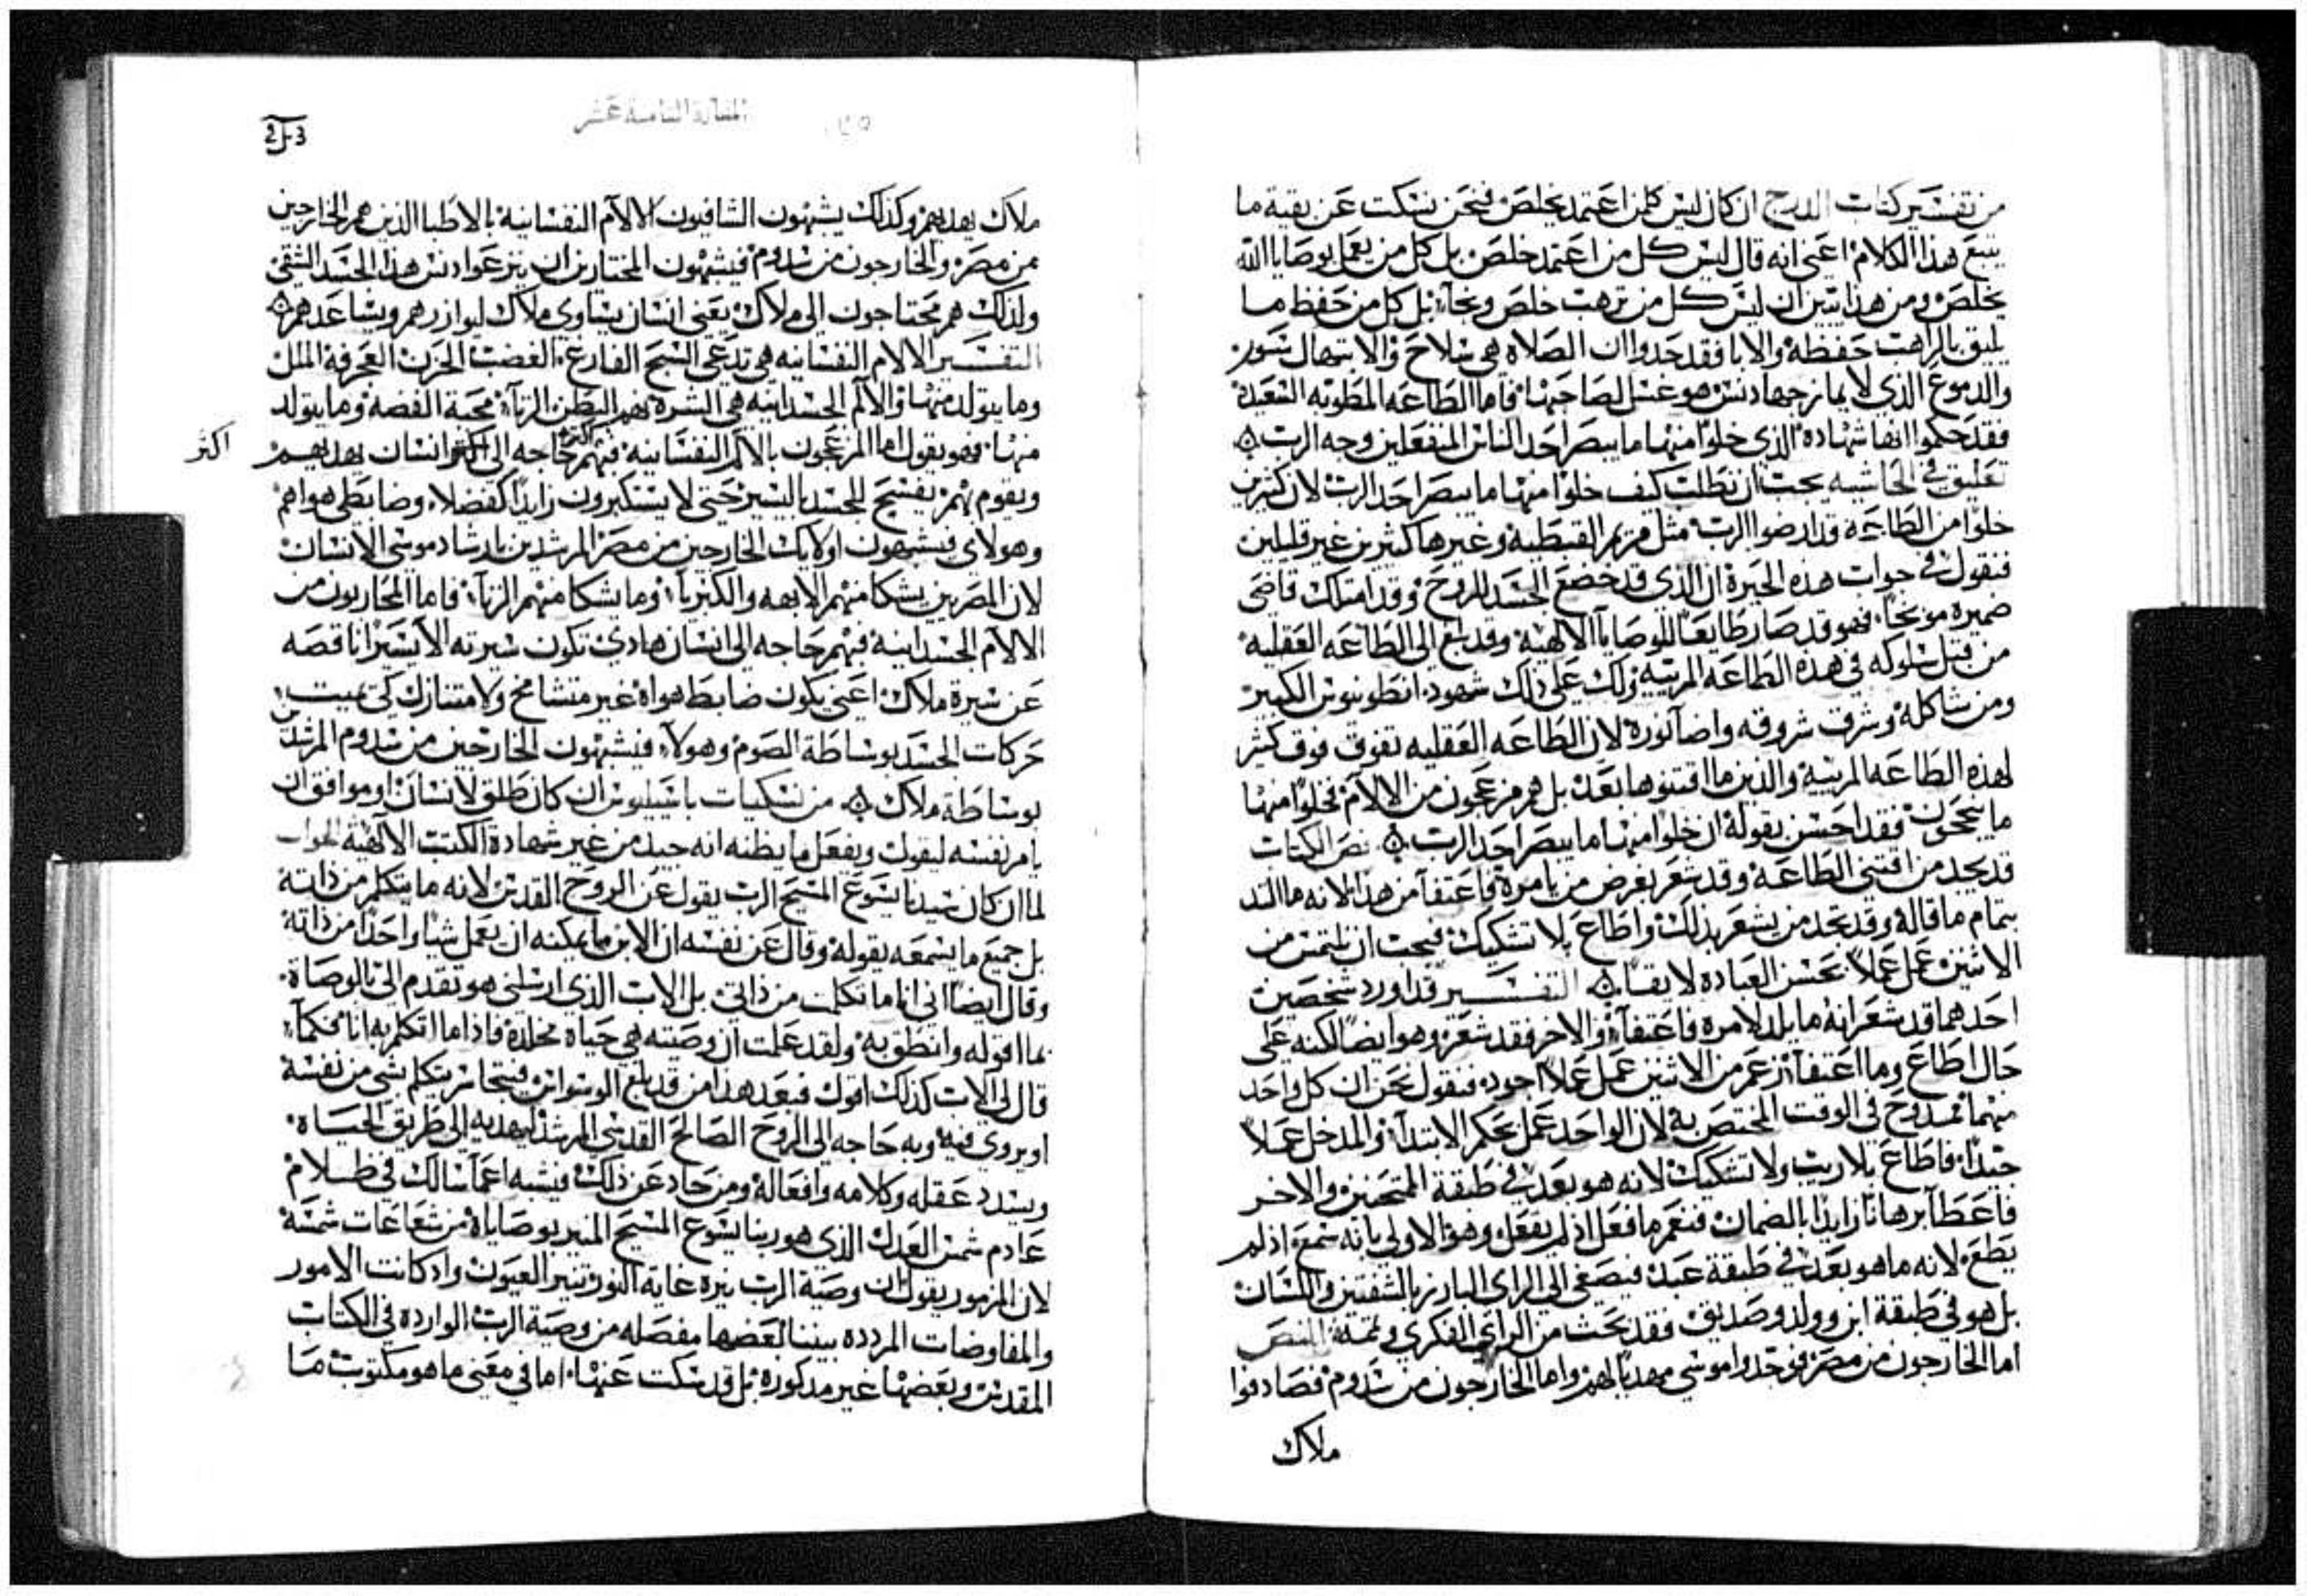 من تفسير كتاب الدرج ان كان ليس كلمن اعتمد يخلص فنحن نسكت عن بقية ما
يتبع هذا الكلام اعني انه قال ليس كل من اعتمد خلص بل كل من يعمل بوصايا الله
يخلص ومن هذا تبين ان ليس كل من ترهب خلص ونجآ بل كل من حفظ ما
يليق بالراهب حفظه والابا فقد حدوا ان الصلاه هي سلاح والابتهال سور
والدموع الذي لا يمازجها دنس هو غسل لصاحبها فاما الطاعه المطوبه السعيدة
فقد حكموا انفا شهاده الذي خلوا منها ما يبصر احد الناس المنفعلين وجه الرب
تعليق في الحاشيه يجب ان نطلب كيف خلوا منها ما يبصر احد الرب لان كثيرين
خلوا من الطاعه قد ارضوا الرب مثل مريم القبطيه وغيرها كثيرين غير قليلين
فنقول في جواب هذه الحيرة ان الذي قد خضع الجسد للروح وقد امتلك قاضي
ضميره موبخا فهو قد صار طايعا للوصايا الالهية وقد بلغ الى الطاعه العقليه
من قبل سلوكه في هذه الطاعه المرتبه ولك على ذلك شهود انطونيوس الكبير
ومن شاكله وشرف شروقه واضا نورة لان الطاعه العقليه تفوق فوق كثير
لهذه الطاعه المرتبة والذين ما اقتنوها بعد بل هم مزعجون من الالام فخلوا منها
ما ينجحون فقد احسن بقوله ان خلوا منها ما يبصر احد الرب نص الكتاب
قد يجد من اقتني الطاعه وقد شعر بغرض من يامرة فاعتفآ من هذا لانه ما التد
بتمام ما قاله وقد تجد من يشعر بذلك واطاع بلا تشكيك فيجب ان نلتمس من
الاثنين عمل عملا بحسن العباده لايقا التفسير قد اورد شخصين
احدهما قد شعر انه ما يلد لامره فاعتفآ والاخر فقد شعر وهو ايضا لكنه على
حال اطاع وما اعتفآ تزعم من الاثنين عمل عملا اجود فنقول نحن ان كل واحد
منهما ممدوح في الوقت المختص به لان الواحد عمل بحكم الابتدآ والمدخل عملا
جيدا فاطاع بلا ريب ولا تشكيك لانه هو بعد في طبقة الممتحنين والاخر
فاعطآ برهانا زايدا بالضمان فنعم ما فعل اذ لم يفعل وهو الاولي بانه سمع اذ لم
يطع لانه ما هو بعد في طبقة عبد فيصغي الى الراي البارز بالشفتين واللسان
بل هو في طبقة ابن وولد وصديق فقد بحث من الراي الفكري وتمة النص
اما الخارجون من مصر فوجدوا موسى مهديا لهم واما الخارجون من سدوم فصادفوا
ملاك
المقالة الثامنة عشر
ملاك يهديهم وكذلك يشبهون الشافيون الالام النفسانية بالاطبا الذين هم الخارجين
من مصر والخارجون من سدوم فيشبهون المختارين ان ينزعوا دنس هذا الجسد الشقي
ولذلك هم محتاجون الى ملاك يعني انسان يساوي ملاك ليوازرهم ويساعدهم
التفسير الالام النفسانيه هي تدعى السبح الفارغ الغضب الحزن العجرفة الملل
وما يتولد منها والآلام الجسدانيه هي الشره نهم البطن الزنآ محبة الفضة وما يتولد
منها فهو يقول اما المزعجون بالالام النفسانية فبهم حاجه الى اكثر انسان يهديهم
اكثر
ويقوم بهم بفسيح للجسد باليسير حتى لا يستكبرون زايدا كفضلا وضابطي هواهم
وهولاي فيشبهون اولايك الخارجين من مصر المرشدين بارشاد موسى الانسان
لان المصريين يشكا منهم الابهه والكبريآ وما يشكا منهم الزنآ فاما المحاربون من
الالام الجسدانية فبهم حاجه الى انسان هادي تكون سيرته الا يسيرا ناقصه
عن سيرة ملاك اعني يكون ضابط هواة غير متشامخ ولا متنازل كي يميت
حركات الجسد بوساطة الصوم وهولآ فيشبهون الخارجين من سدوم المرشدين
بوساطة ملاك من نسكيات باسيليوس ان كان طلق لانسان او موافق ان
يامر نفسه ليقول ويفعل ما يظنه انه جيد من غير شهادة الكتب الالهية الجواب
لما ان كان سيدنا يسوع المسيح الرب يقول عن الروح القدس لانه ما يتكلم من ذاته
بل جميع ما يسمعه يقوله وقال عن نفسه ان الابن ما يمكنه ان يعمل شيا واحدا من ذاته
وقال ايضا اني انا ما تكلمت من ذاتي بل الاب الذي ارسلني هو تقدم الي بالوصاة
بما اقوله وانطق به ولقد علمت ان وصيته هي حياة مخلدة فاذا ما اتكلم به انا فكما
قال لي الاب كذلك اقول فبعد هذا من قد بلغ الوسواس فيتجاسر يتكلم بشي من نفسه
او يروي فيه وبه حاجه الى الروح الصالح القدسي المرشد ليهديه الى طريق الحياة
ويسدد عقله وكلامه وافعاله ومن حاد عن ذلك فيشبه اعمآ سالك في ظلام
عادم شمس العدل الذي هو ربنا يسوع المسيح المنير بوصاياة من شعاعات شمسه
لان المزمور يقول ان وصية الرب نيره غاية النور تنير العيون واد كانت الامور
والمفاوضات المردده بيننا بعضها مفصله من وصية الرب الواردة في الكتاب
المقدس وبعضها غير مذكورة بل قد سكت عنها اما في معني ما هو مكتوب ما